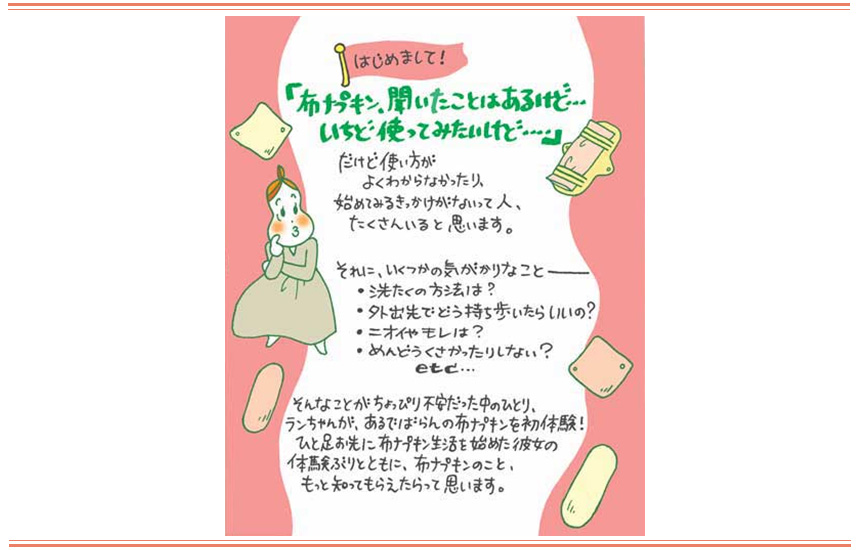 はじめまして!
「布ナプキン、聞いたことはあるけど…
いちど使ってみたいけど……」
だけど使い方が
よくわからなかったり、
始めてみるきっかけがないって人、
たくさんいると思います。
それに、いくつかの気がかりなこと――
・洗たくの方法は?
・外出先でどう持ち歩いたらいいの?
・ニオイやモレは?
・めんどうくさかったりしない?
etc…
そんなことがちょっぴり不安だった中のひとり、
ランちゃんが、あるでばらんの布ナプキンを初体験!
ひと足お先に布ナプキン生活を始めた彼女の
体験ぶりとともに、布ナプキンのこと、
もっと知ってもらえたらって思います。